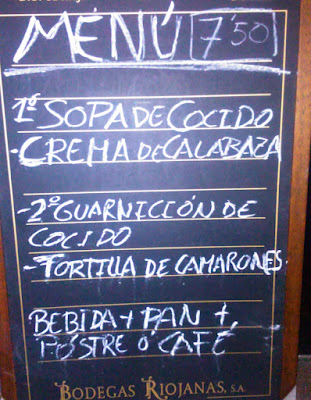 MENÚ 7'50
1º SOPA DE COCIDO
- CREMA DE CALABAZA
- 2º GUARNICIÓN DE
COCIDO
- TORTILLA DE CAMARONES
BEBIDA + PAN +
POSTRE O CAFÉ
BODEGAS RIOJANAS, S.A.